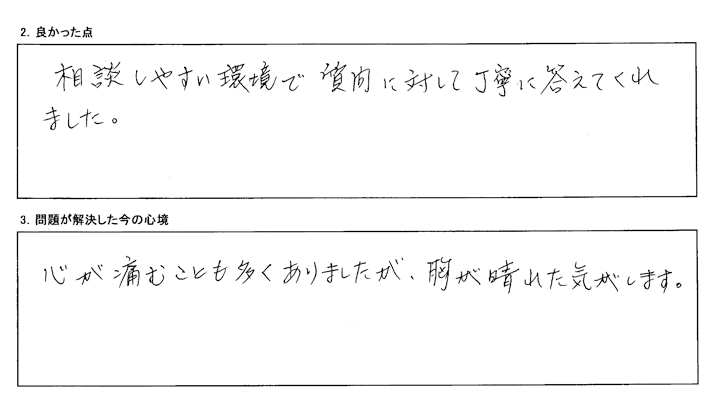 2. 良かった点
相談しやすい環境で質問に対して丁寧に答えてくれ
ました。
3. 問題が解決した今の心境
心が痛むことも多くありましたが、胸が晴れた気がします。